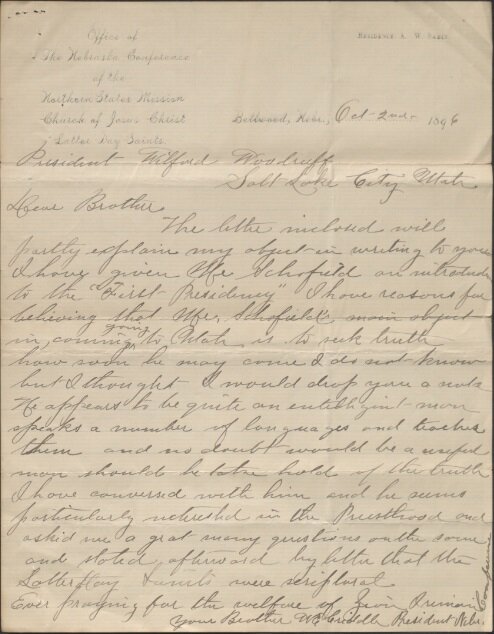 Office of
The Nebraska Conference
of the
Northern States Mission
Church of Jesus Christ
of Latter Day Saints.
RESIDENCE A. W.
Bellwood, Nebr., Oct- 2nd- 1896
President Wilford Woodruff
Salt Lake City Utah
Dear Brother
The letter inclosed will
partly explain my object in writing to you
I have given Mr. Schofield an introduction
to the "First Presidency" I have reasons for
believing that Mr. Schofield's main object
in coming going to Utah is to seek truth
how soon he may come I do not know
but I thought I would drop you a note
He appears to be quite an inteligint man
speaks a number of languages and teaches
them and no doubt would be a useful
man should he take hold of the truth
I have conversed with him and he seems
particularly in the Priesthood and
asked me a grat many questions on the same
and stated afterward by letter that the
Latter Day Saints were scriptural
Ever praying for the welfare of Zion I remain
your Brother President Nebr.
Conference